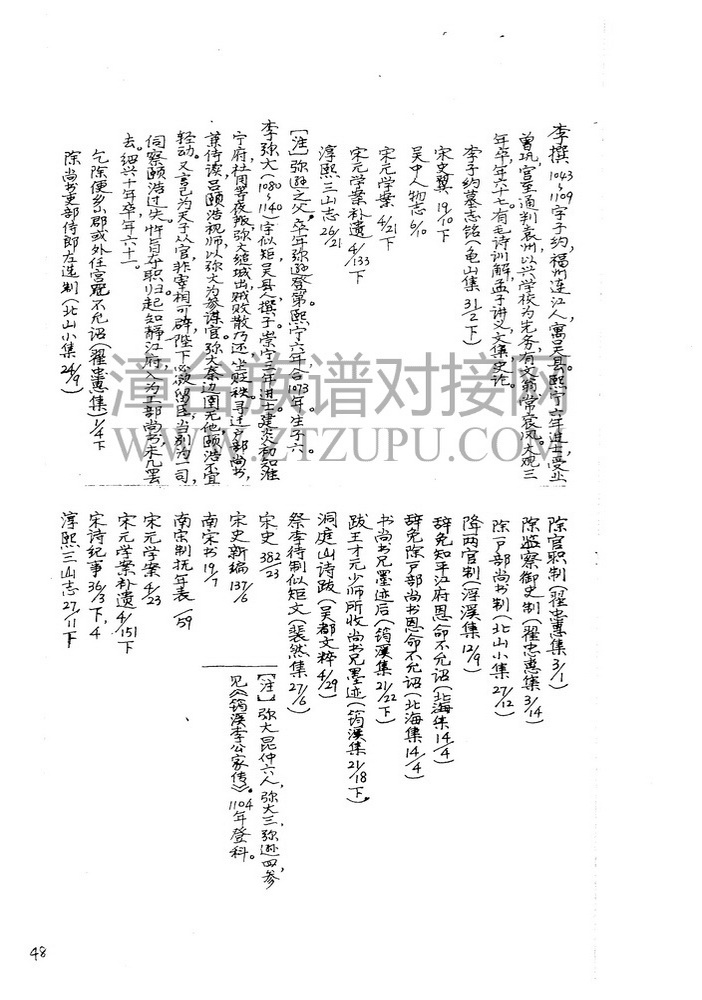 李撰 1043~1109 字子约，福州连江人，寓吴县。熙宁六年进士，受业
曾巩，官至通判袁州，以兴学校为先务，有文翁常衮风。大观三
年卒，年六十七。有毛诗训解，孟子讲义，文集史论。
李子约墓志铭（龟山集 31/2下）
宋史翼 19/10下
吴中人物志 6/10
宋元学案 4/21下
宋元学案补遗 4/133下
淳熙三山志 26/21
【注】弥逊之父。卒年弥逊登第。熙宁六年合1073年。生子六。
李弥大（1080~1140）字似矩，吴县人，撰子。崇宁三年进士，建炎初知淮
宁府，杜用等夜叛，弥大缒城出，贼败散乃还，坐贬秩。寻迁户部尚书，
兼侍读，吕颐浩视师，以弥大为参谋官。弥大奏边圉无他，颐浩不宜
轻动。又言己为天子从官，非宰相可辟，陛下必欲留臣，当别为一司，
伺察颐浩过失。忤旨夺职归。起知静江府，入为工部尚书，未几罢
去。绍兴十年卒年六十一。
乞除便乡小郡或外任宫观不允诏（翟忠惠集 1/4下
除尚书吏部侍郎左选制（北山小集 24/9）
除官职制（翟忠惠集 3/1）
除监察御史制（翟忠惠集 3/14）
除户部尚书制（北山小集 27/12）
降两官制（浮溪集 12/9）
辞免知平江府恩命不允诏（北海集 14/4）
辞免除户部尚书恩命不允诏（北海集 14/4）
书尚书兄墨迹后（筠溪集 21/22下）
跋王才元少师所收尚书兄墨迹（筠溪集 21/18下）
洞庭山诗跋（吴都文粹 4/29）
祭李待制似矩文（裴然集 27/6）
宋史 382/23
宋史新编 137/6
南宋书 19/7
南宋制抚年表 /59
宋元学案 4/23
宋元学案补遗 4/151下
宋诗纪事 36/3下，4
淳熙三山志 27/11下
【注】弥大昆仲六人，弥大三，弥逊四。参
见《筠溪李公家传》。1104年登科。
48
漳台族谱对接网
WWW.ZTZUPU.COM